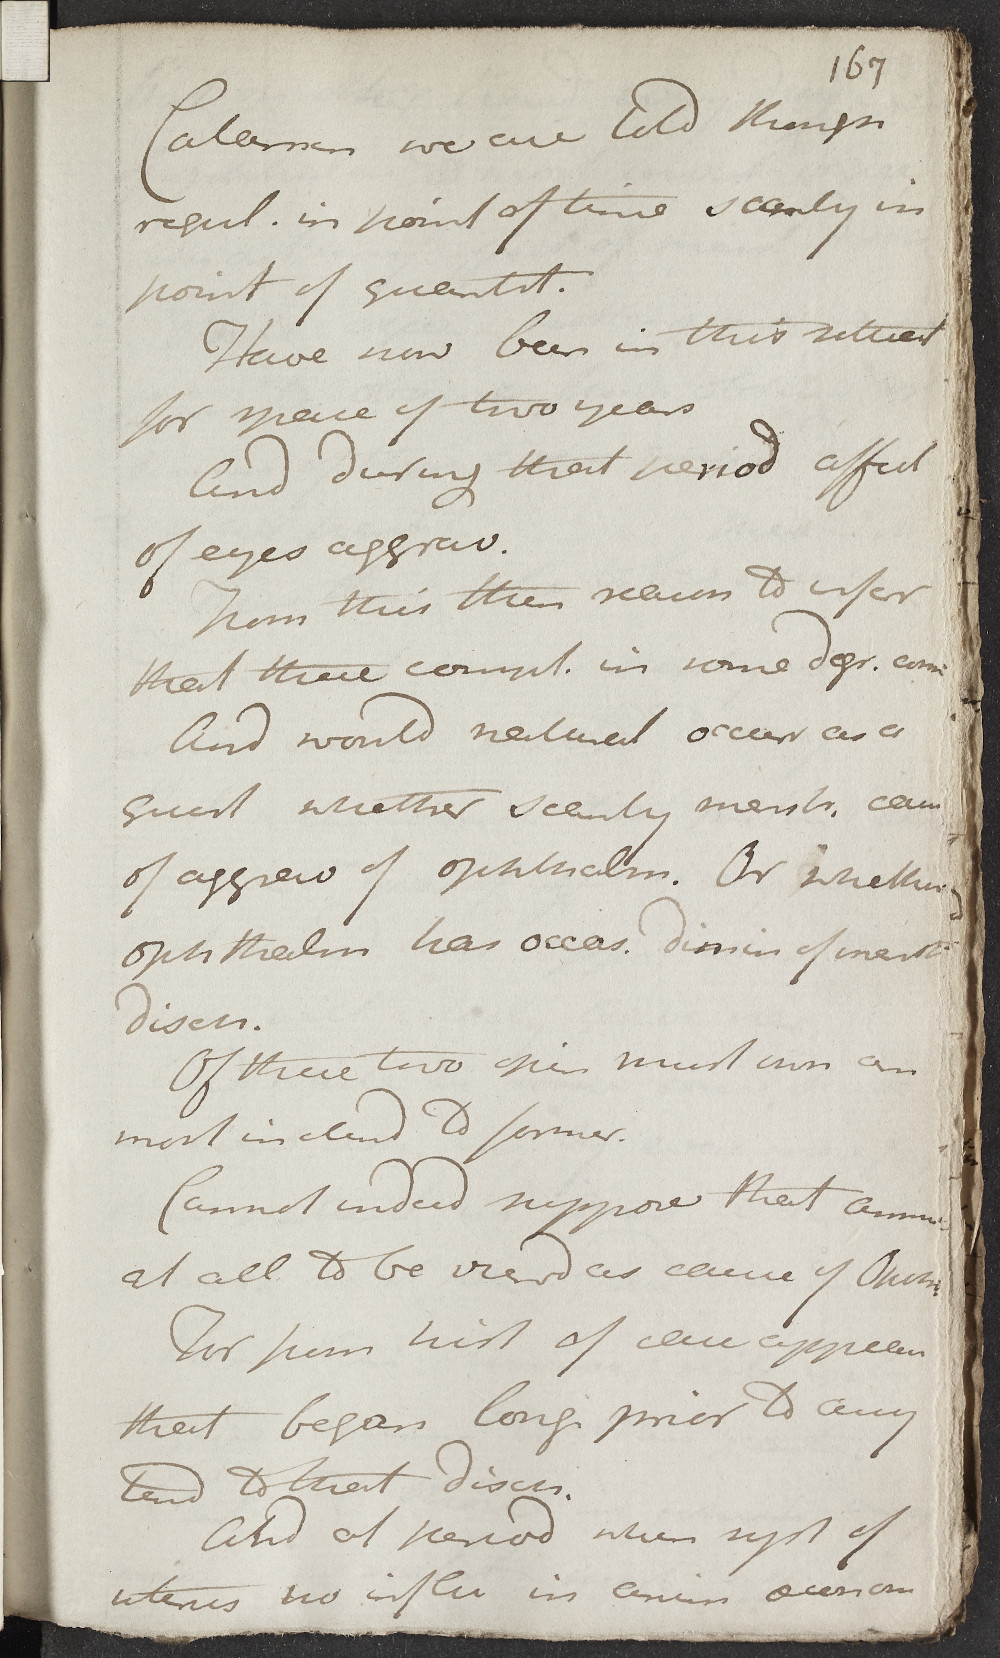 167
Catamen we are told though
regul. in point of time scanty in
point of quantit.
Have now been in this situat
for space of two years
And during that period affect
of eyes aggrav.
From this then reason to infer
that these compl. in some degr. conn
And would natural occur as a
quest whether scanty menstr. caus
of aggrav of ophthalm. Or whether
ophthalm has occas. dimin of menst
disch.
Of these two opin must own am
most inclend to former.
Cannot indeed suppose that
at all to be viewd as cause of Ophth.
For from hist of case appears
that began long prior to any
tend to that disch.
And at period when syst of
uterus no influ in anim oeconom